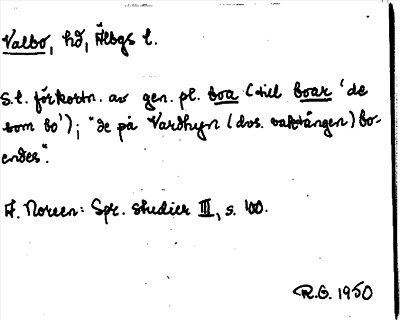 Valbo, hd, Älbgs l.
S.l. förkortn. av gen. pl. boa (till boar 'de
som bo'); "de på Vardhyn (dvs. vakttången) bo-
endes".
A. Noreen: Spr. studier III, s. 100.
R.G. 1950